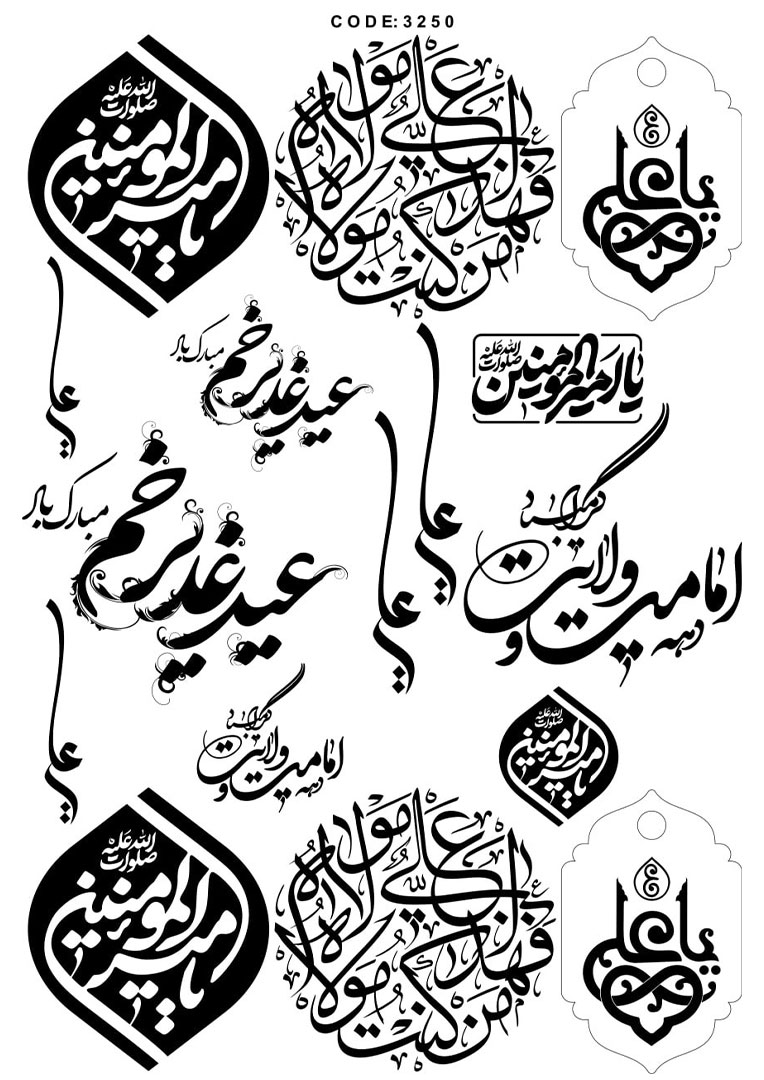 CODE:3250
یا امیرالمومنین
صلوات الله علیه
من کنت مولاه فهذا علی مولاه
یا علی
ع
علی
عید غدیر خم
مبارک باد
یا امیرالمومنین
صلوات الله علیه
علی
علی
عید غدیر خم
مبارک باد
دهه امامت و ولایت
گرامیباد
علی
دهه امامت و ولایت
گرامیباد
یا امیرالمومنین
صلوات الله علیه
یا امیرالمومنین
صلوات الله علیه
من کنت مولاه فهذا علی مولاه
یا علی
ع